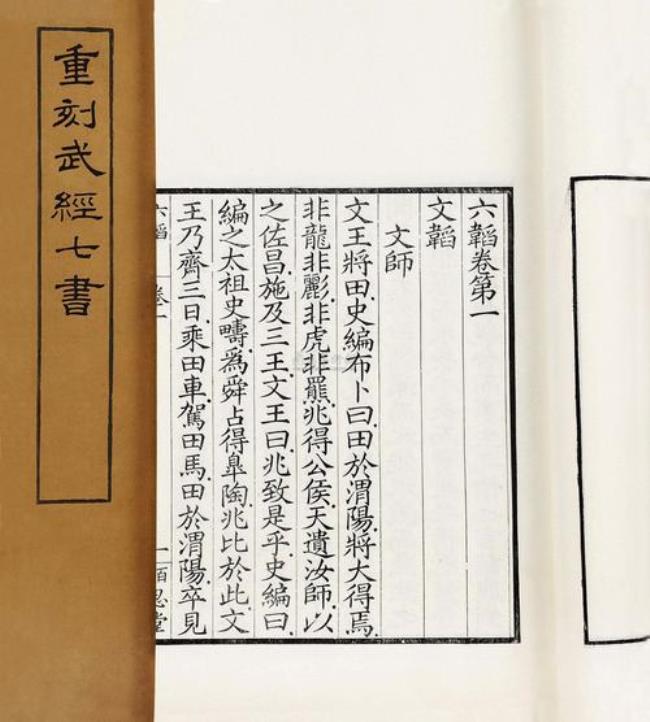 重刻武經七書
六韜卷第一
文韜
文師
文王將田史編布卜曰田於渭陽將大得焉
非龍非彲非虎非羆兆得公侯天遺汝師以
之佐昌施及三王文王曰兆致是乎史編曰
編之太祖史疇為舜占得臯陶兆比於此文
王乃齋三日乘田車駕田馬田於渭陽卒見
六韜 卷一 一 百忍堂